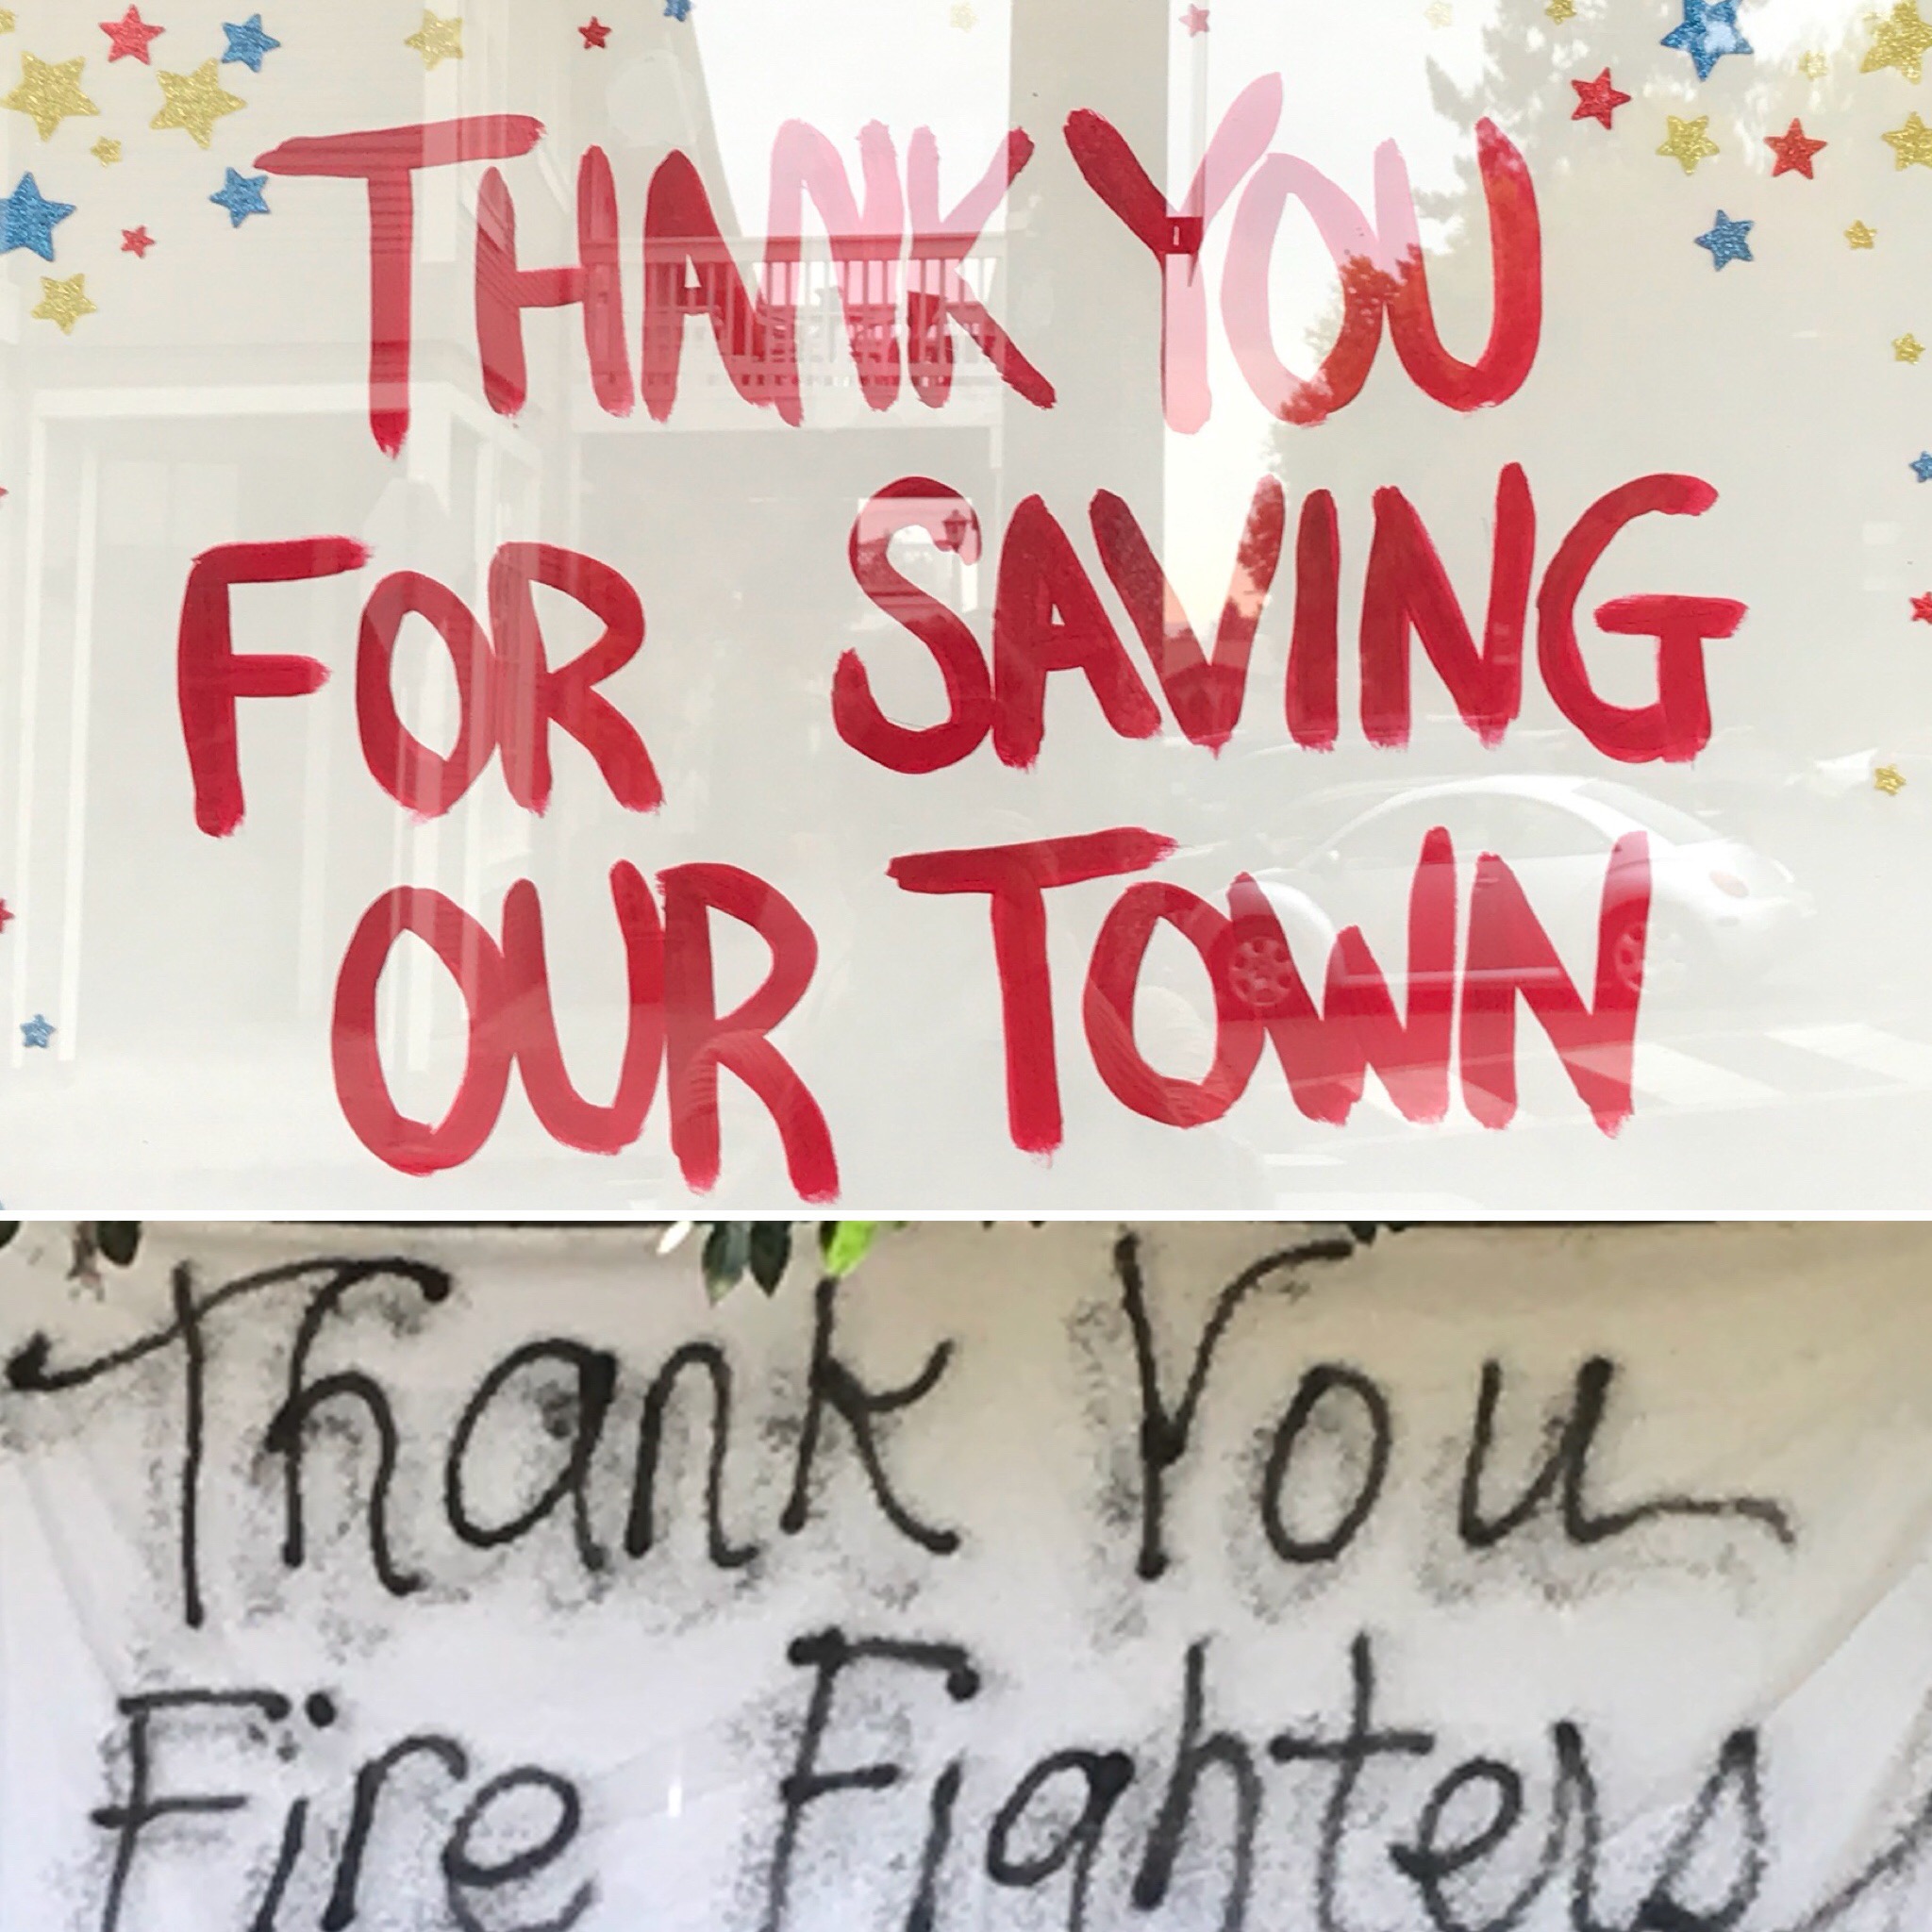 THANK YOU
FOR SAVING
OUR TOWN
Thank You
Fire Fighters